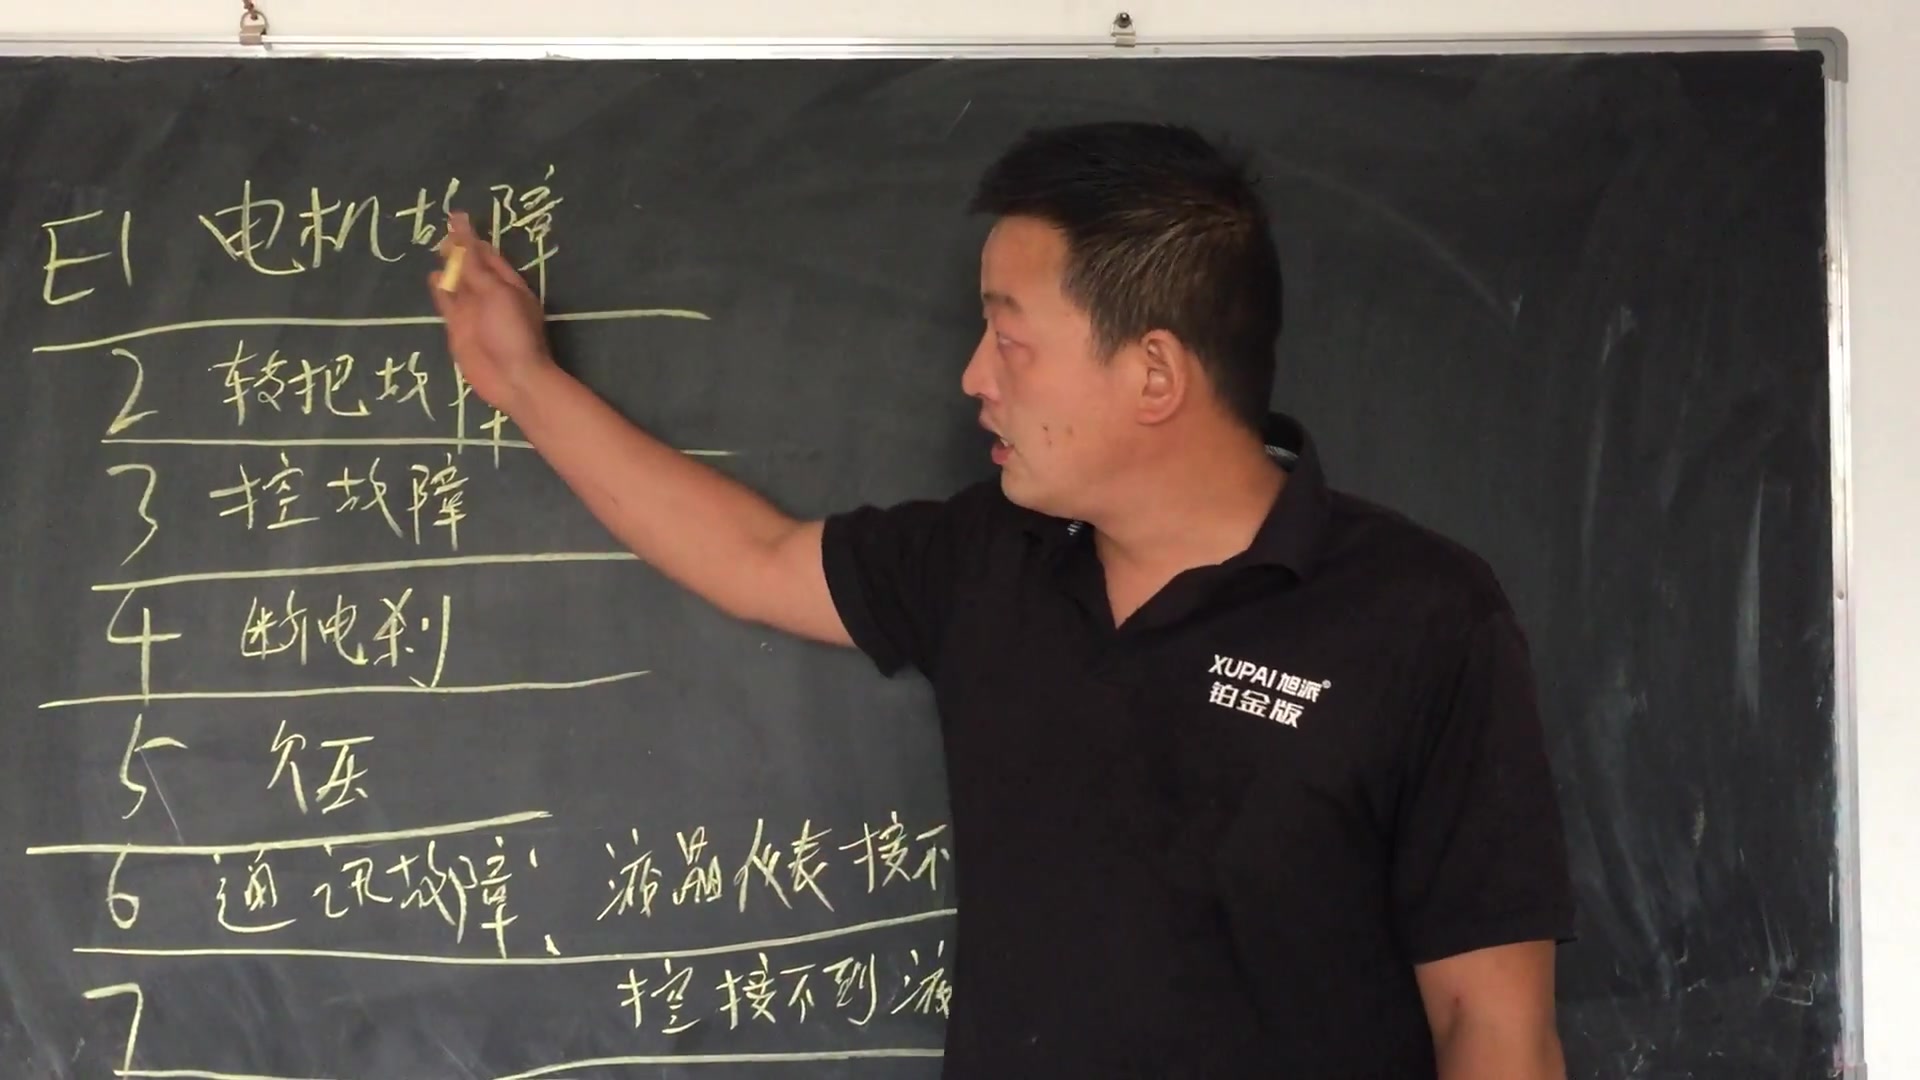 E1 电机故障
2 转把故障
3 控故障
4 断电刹
5 欠压
6 通讯故障、液晶仪表接不
7 控接不到液
XUPAI 旭派®
铂金版